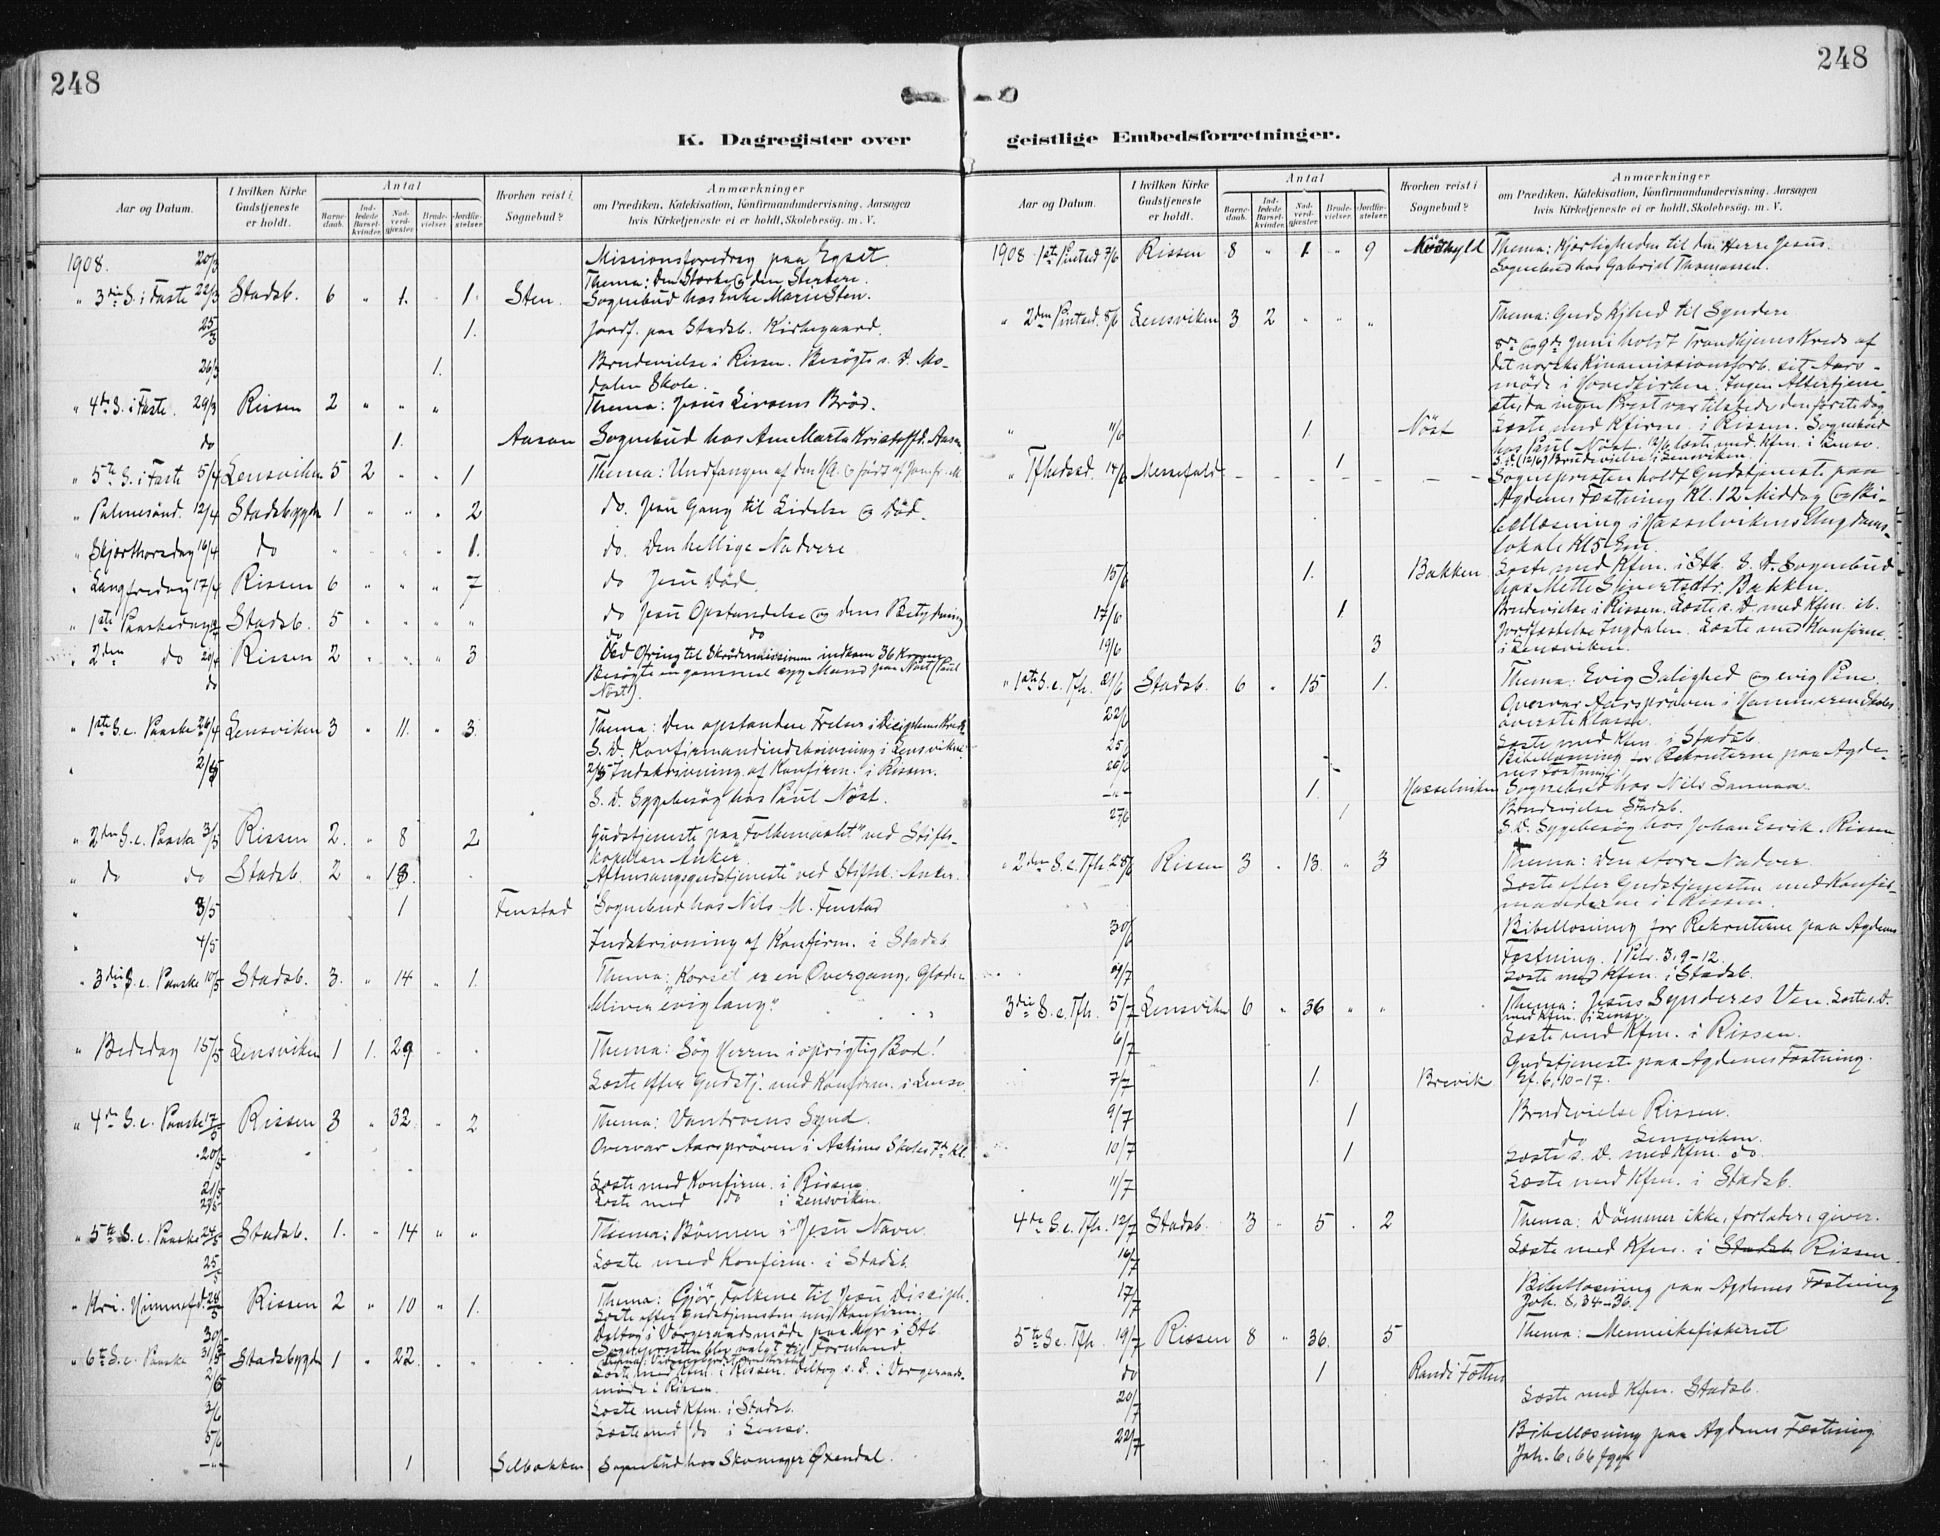 248
248
K. Dagregister over geistlige Embedsforretninger.
Aar og Datum.
I hvilken Kirke Gudstjeneste er holdt.
Antal
Barnedaab.
Indledede Barselkvinder.
Nadverdgjæster.
Brudevielser.
Jordfæstelser.
Hvorhen reist i Sognebud?
Anmærkninger
om Prædiken, Katekisation, Konfirmandundervisning, Aarsagen
hvis Kirketjeneste ei er holdt, Skolebesøg. m. V.
1908. 20/3 Missionsforedrag paa Egset.
Thema: Den Stærke og den Sterkere.
" 3die S. i Faste 22/3 Stadsb. 6 " 1. 1. Sten. Sognebud hos Enke Marie Sten.
25/3 1. Jordf. paa Stadsb. Kirkegaard.
26/3 1. Brudevielse i Rissen. Besøgte s. D. Mo-
dalen Skole.
" 4de S. i Faste. 29/3 Rissen 2 " " " Thema: Jesus Livsens Brød.
do 1. Aasan Sognebud hos Ane Marta Kristoffd. Aasan
" 5te S. i Faste 5/4 Lensviken 5 2 " " 1 Thema: Undfangen af den H.A. og født af Jomfr. M.
" Palmesønd. 12/4 Stadsbygd 1 " " " 2 do. Jesu Gang til Lidelse og Død.
" Skjærthorsdag 16/4 do " " " " 1. do. Den hellige Nadvere
" Langfredag 17/4 Rissen 6 " " " 7 do Jesu Død.
" 1ste Paaskedag Stadsb. 5 " " " " do Jesu Opstandelse og dens Betydning
" 2den do 20/4 Rissen 2 " " " 3 do do
Ved Ofring til indkom 36 Kroner
do Besøgte en gammel syg Mand paa Nøst (Paul
Nøst).
" 1ste S. e. Paaske 26/4 Lensviken 3 " 11. " 3. Thema: Den opstandne Frelser i Disciplenes Kreds.
S. D. Konfirmandindskrivning i Lensviken.
" 2/5 2/5 Indskrivning af Konfirm. i Rissen.
S. D. Sygebesøg hos Paul Nøst.
" 2den S. e. Paaske 3/5 Rissen 2. " 8 2 Gudstjeneste paa "Folkemaalet" ved Stifts-
kapelan Anker.
" do do Stadsb. 2 " 18. "Aftensangsgudstjeneste" ved Stiftsk. Anker.
" 3/5 1 Fenstad Sognebud hos Nils M. Fenstad
" 4/5 Indskrivning af Konfirm. i Stadsb
" 3die S. e. Paaske 10/5 Stadsb. 3. " 14 " 1. Thema: "Korset er en Overgang, Glæden
bliver evig lang".
" Bededag 15/5 Lensviken 1 1. 29 " " Thema: Søg Herren i oprigtig Bod!
Læste efter Gudstj. med Konfirm. i Lensv.
" 4de S. e. Paaske 17/5 Rissen 3 " 32 " 2 Thema: Vantroens Synd.
20/5 Overvar Aarsprøven i Askims Skoles 7de Kl.
21/5 Læste med Konfirm. i Rissen.
23/5 Læste med do i Lensviken.
" 5te S. e. Paaske 24/5 Stadsb. 1. " 14 " " Thema: Bønnen i Jesu Navn.
25/5 Læste med Konfirm. i Stadsb.
" Kri. Himmelfd. 28/5 Rissen 2 " 10 " 1. Thema: Gjør Folkene til Jesu Disciple.
Læste efter Gudstjenesten med Konfirm.
30/5 Deltog i Vergeraadsmøde paa Mgr i Stb.
Sognepresten blev valgt til Formand.
" 6te S. e. Paaske 31/5 Stadsbygd 1 " 22 " "
2/6 Læste med Kfm. i Rissen. Deltog s. D. i Vergeraads-
møde i Rissen.
3/6 Læste med Kfm. i Stadsb.
5/6 Læste med do i Lensv.
—"— 1 Selbakken Sognebud hos Skomager Øxendal.
Aar og Datum.
I hvilken Kirke Gudstjeneste er holdt.
Antal
Barnedaab.
Indledede Barselkvinder.
Nadverdgjæster.
Brudevielser.
Jordfæstelser.
Hvorhen reist i Sognebud?
Anmærkninger
om Prædiken, Katekisation, Konfirmandundervisning, Aarsagen
hvis Kirketjeneste ei er holdt, Skolebesøg. m. V.
1908 1ste Pintsed. 7/6 Rissen 8 " 1. " 9 Thema: Kjærligheden til den Herre Jesus.
Sognebud hos Gabriel Thomassen.
" 2den Pintsed. 8/6 Lensviken 3 2 " " " Thema: Guds Kjhed til Syndere
8de og 9de Juni holdt Trondhjems Kreds af
det norske Kinamissionsforb. sit Aars-
møde i Hovedkirken. Ingen Altertjene-
ste, da ingen Prest var tilstede den første Dag
" 11/6 1. Nøst Læste med Kfirm. i Rissen. Sognebud
hos Paul Nøst. 12/6 læste med Kfm. i Lensv.
S.D. (12/6) Brudevielse i Lensviken.
" Tfhedssd. 14/6 Messefald 1 Sognepresten holdt Gudstjeneste paa
Agdenes Fæstning Kl. 12 Middag og Bi-
bellæsning i Hasselvikens Ungdoms-
lokale Kl 5 Em.
15/6 1. Bakken Læste med Kfm. i Stb. S. D. Sognebud
hos Mette Sivertsdtr. Bakken.
17/6 1 Brudevielse i Rissen. Læste s. D. med Kfm. ib.
19/6 3 Jordfæstelse Ingdalen. Læste med Konfirm.
i Lensviken.
" 1ste S. e. Tfh. 21/6 Stadsb. 6 " 15 1. Thema: Evig Salighed og evig Pine.
22/6 Overvar Aarsprøven i Hammeren Skoles
øverste Klasse.
25/6 Læste med Kfm. i Stadsb.
26/6 Bibellæsning for Rekruterne paa Agde-
nes Fæstning.
—"— 1. Hasselviken Sognebud hos Nils
27/6 1 Brudevielse Stadsb.
S. D. Sygebesøg hos Johan Esvik, Rissen
" 2den S. e. Tfh. 28/6 Rissen 3 " 13 " 3 Thema: Den store Nadver
Læste efter Gudstjenesten med Konfir-
manderne i Rissen.
30/6 Bibellæsning for Rekruterne paa Agdenes
Fæstning. 1 Petr. 3, 9-12.
Læste med Kfm. i Stadsb.
3die S. e. Tfh. 5/7 Lensviken 6 " 36 " " Thema: Jesus Synderes Ven. Læste s. D.
med Kfm. i Lensv.
6/7 Læste med Kfm. i Rissen.
Gudstjeneste paa Agdenes Fæstning.
7/7 1. Brevik Ef. 6, 10-17.
9/7 1 Brudevielse Rissen.
10/7 1 do Lensviken.
Læste s. D. med Kfm. do.
11/7 Læste med Kfm. i Stadsb.
4de S. e. Tfh. 12/7 Stadsb. 3 " 5 . 2 Thema: Dømmer ikke, forlader, giver.
16/7 Læste med Kfm. i Stadsb Rissen
17/7 Bibellæsning paa Agdenes Fæstning
Joh. 8, 34-36.
5te S. e. Tfh. 19/7 Rissen 8 " 36. 5 Thema: Menneskefiskeriet
do 1
20/7 Læste med Kfm. Stadsb.
22/7 Bibellæsning paa Agdenes Fæstning
Joh. 6, 66 fgg.